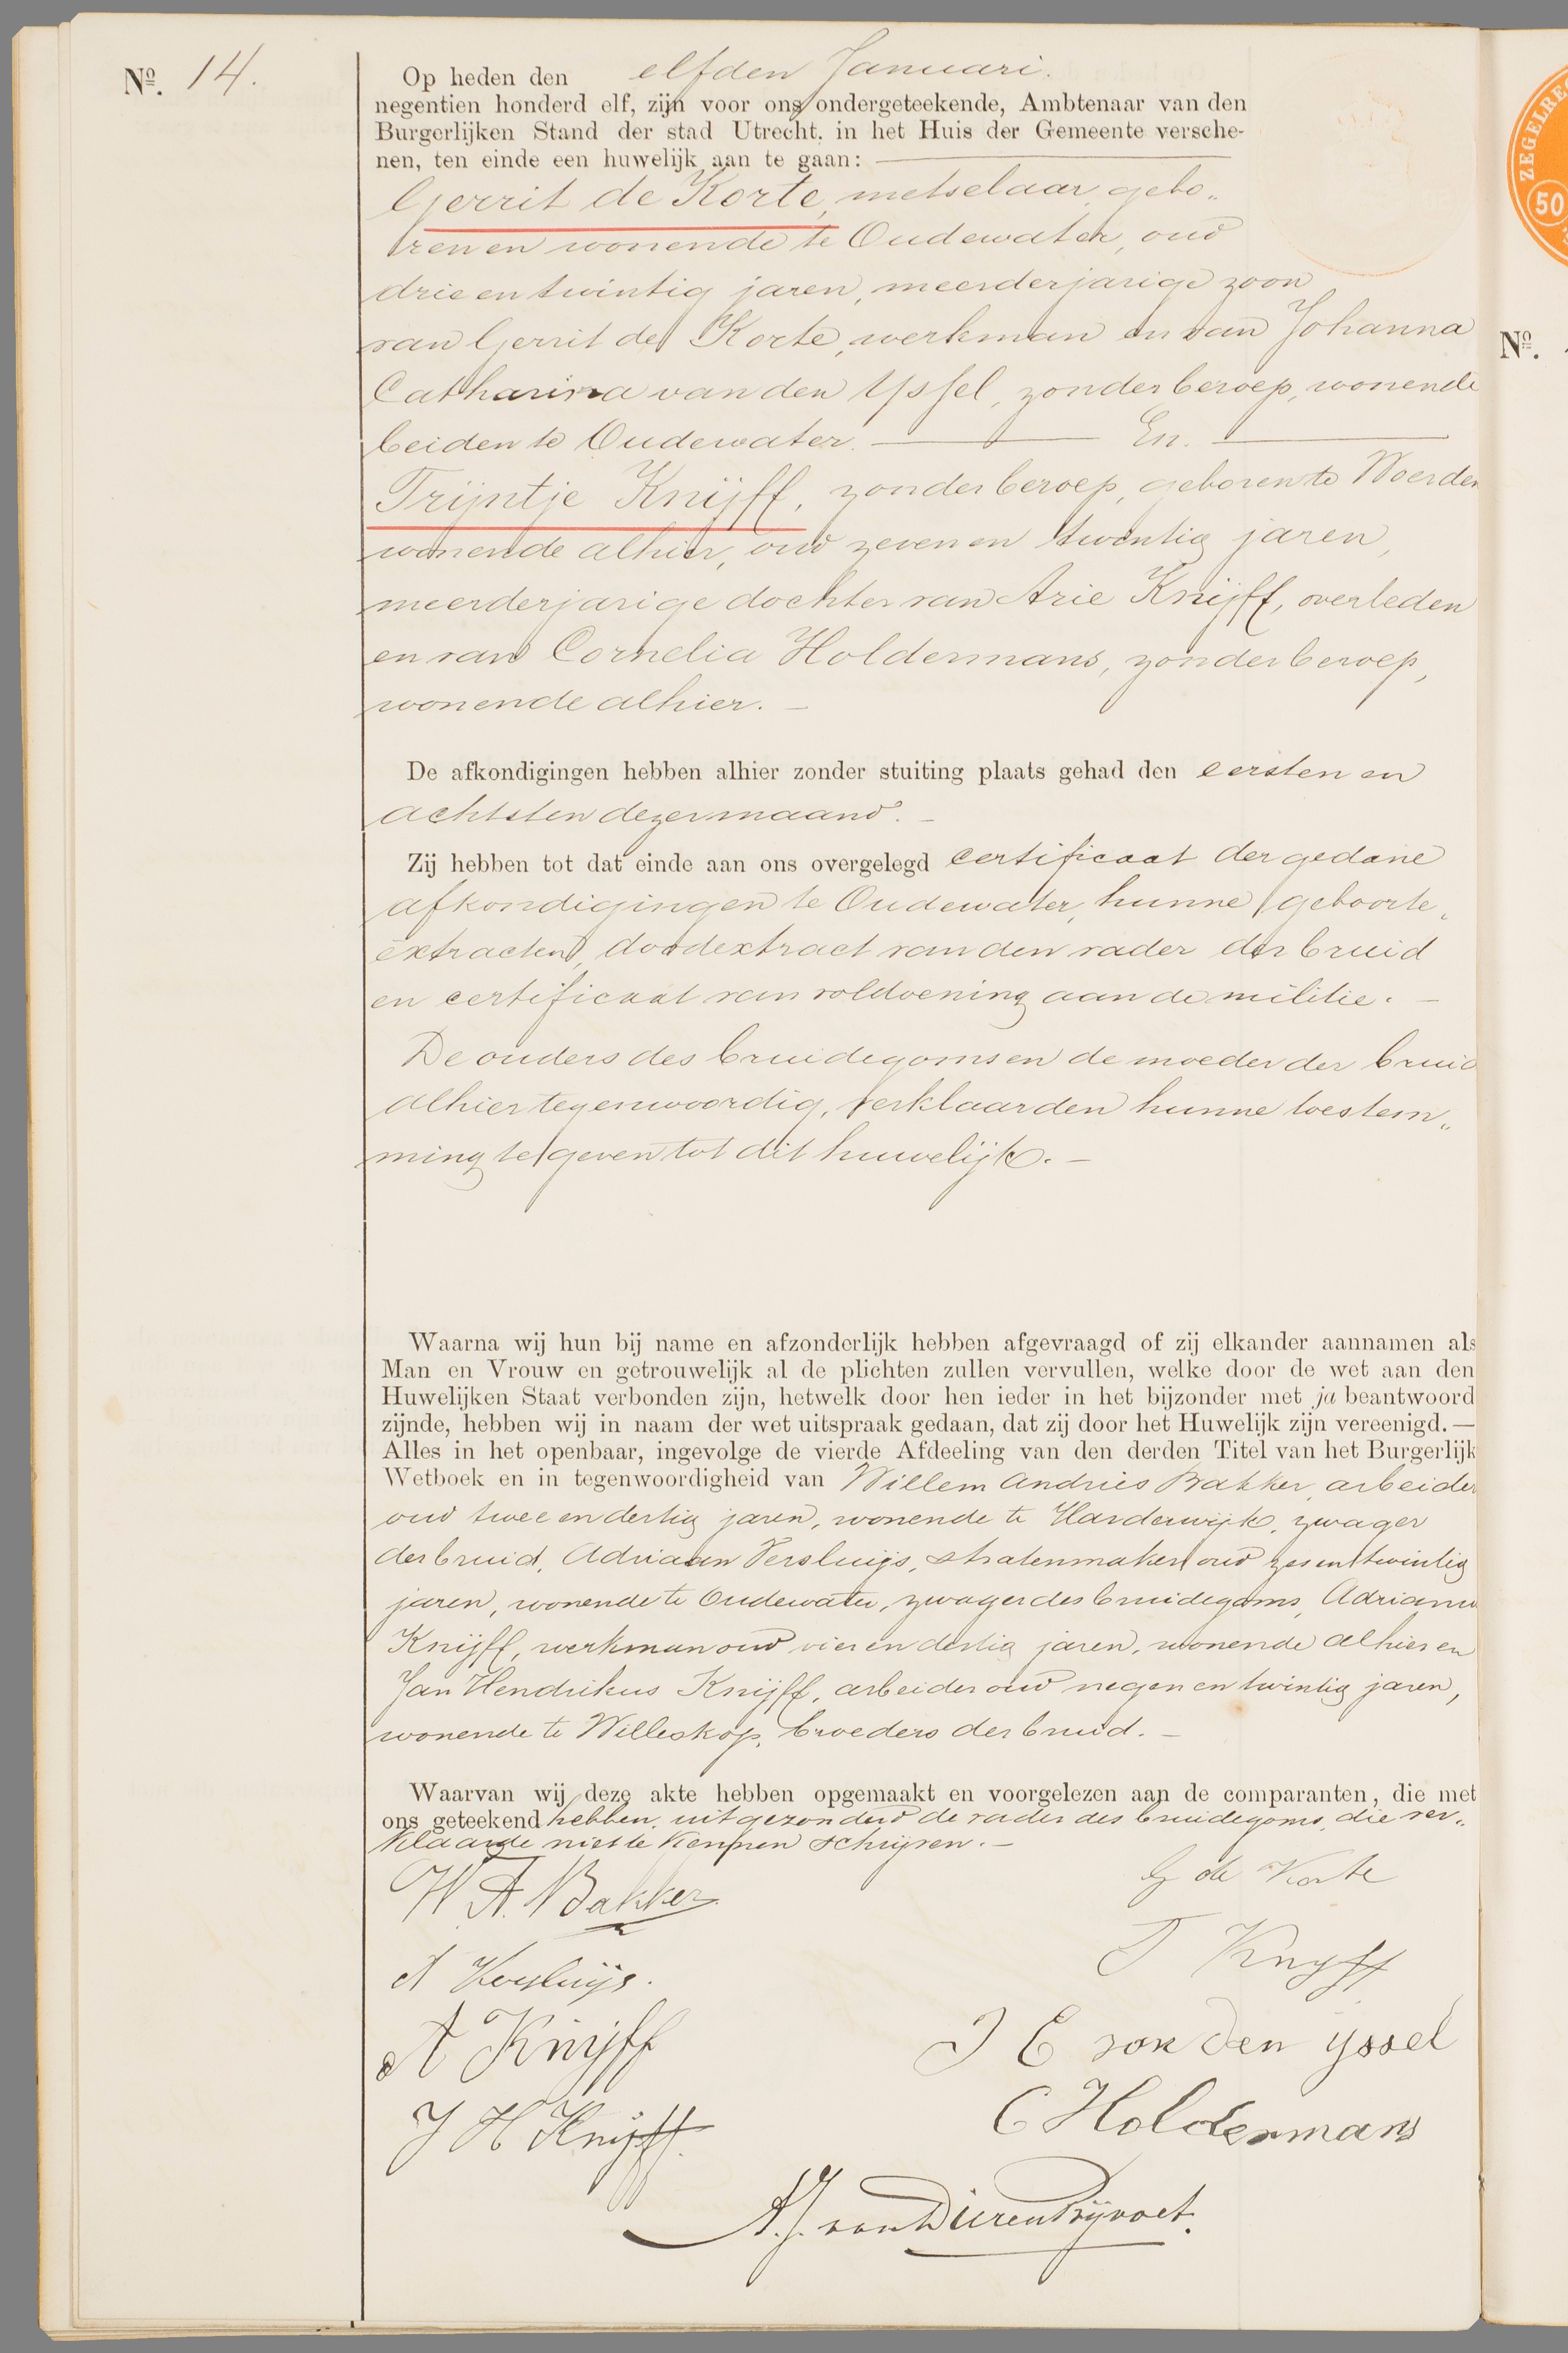 No. 14.
Op heden den elfden Januari.
negentien honderd elf, zijn voor ons ondergeteekende, Ambtenaar van den
Burgerlijken Stand der stad Utrecht, in het Huis der Gemeente versche-
nen, ten einde een huwelijk aan te gaan:
Gerrit de Korte, metselaar, gebo„
ren en wonende te Oudewater, oud
drie en twintig jaren, meerderjarige zoon
van Gerrit de Korte, werkman en van Johanna
Catharina van den Yssel, zonder beroep, wonende
beiden te Oudewater. En.
Trijntje Knijff, zonder beroep, geboren te Woerden
wonende alhier, oud zeven en twintig jaren,
meerderjarige dochter van Arie Knijff, overleden
en van Cornelia Holdermans, zonder beroep,
wonende alhier. —
De afkondigingen hebben alhier zonder stuiting plaats gehad den eersten en
achtsten dezer maand. —
Zij hebben tot dat einde aan ons overgelegd certificaat der gedane
afkondigingen te Oudewater, hunne geboorte„
extracten, doodextract van den vader der bruid
en certificaat van voldoening aan de militie. —
De ouders des bruidegoms en de moeder der bruid
alhier tegenwoordig, verklaarden hunne toestem„
ming te geven tot dit huwelijk. —
Waarna wij hun bij name en afzonderlijk hebben afgevraagd of zij elkander aannamen als
Man en Vrouw en getrouwelijk al de plichten zullen vervullen, welke door de wet aan den
Huwelijken Staat verbonden zijn, hetwelk door hen ieder in het bijzonder met ja beantwoord
zijnde, hebben wij in naam der wet uitspraak gedaan, dat zij door het Huwelijk zijn vereenigd. —
Alles in het openbaar, ingevolge de vierde Afdeeling van den derden Titel van het Burgerlijk
Wetboek en in tegenwoordigheid van Willem Andries Bakker, arbeider
oud twee en dertig jaren, wonende te Harderwijk, zwager
der bruid, Adriaan Versluijs, stratenmaker oud zes en twintig
jaren, wonende te Oudewater, zwager des bruidegoms, Adrianus
Knijff, werkman oud vier en dertig jaren, wonende alhier en
Jan Hendrikus Knijff, arbeider oud negen en twintig jaren,
wonende te Willeskop, broeders der bruid. —
Waarvan wij deze akte hebben opgemaakt en voorgelezen aan de comparanten, die met
ons geteekend hebben, uitgezonderd de vader des bruidegoms, die ver„
klaarde niet te kennen schrijven. —
W. A. Bakker
G de Korte
A Versluijs.
T Knyff
A Knijff
J C van den ijssel
J H Knijff.
C Holdermans
A. J. van Dieren Bijvoet.
ZEGELRE
50
No.